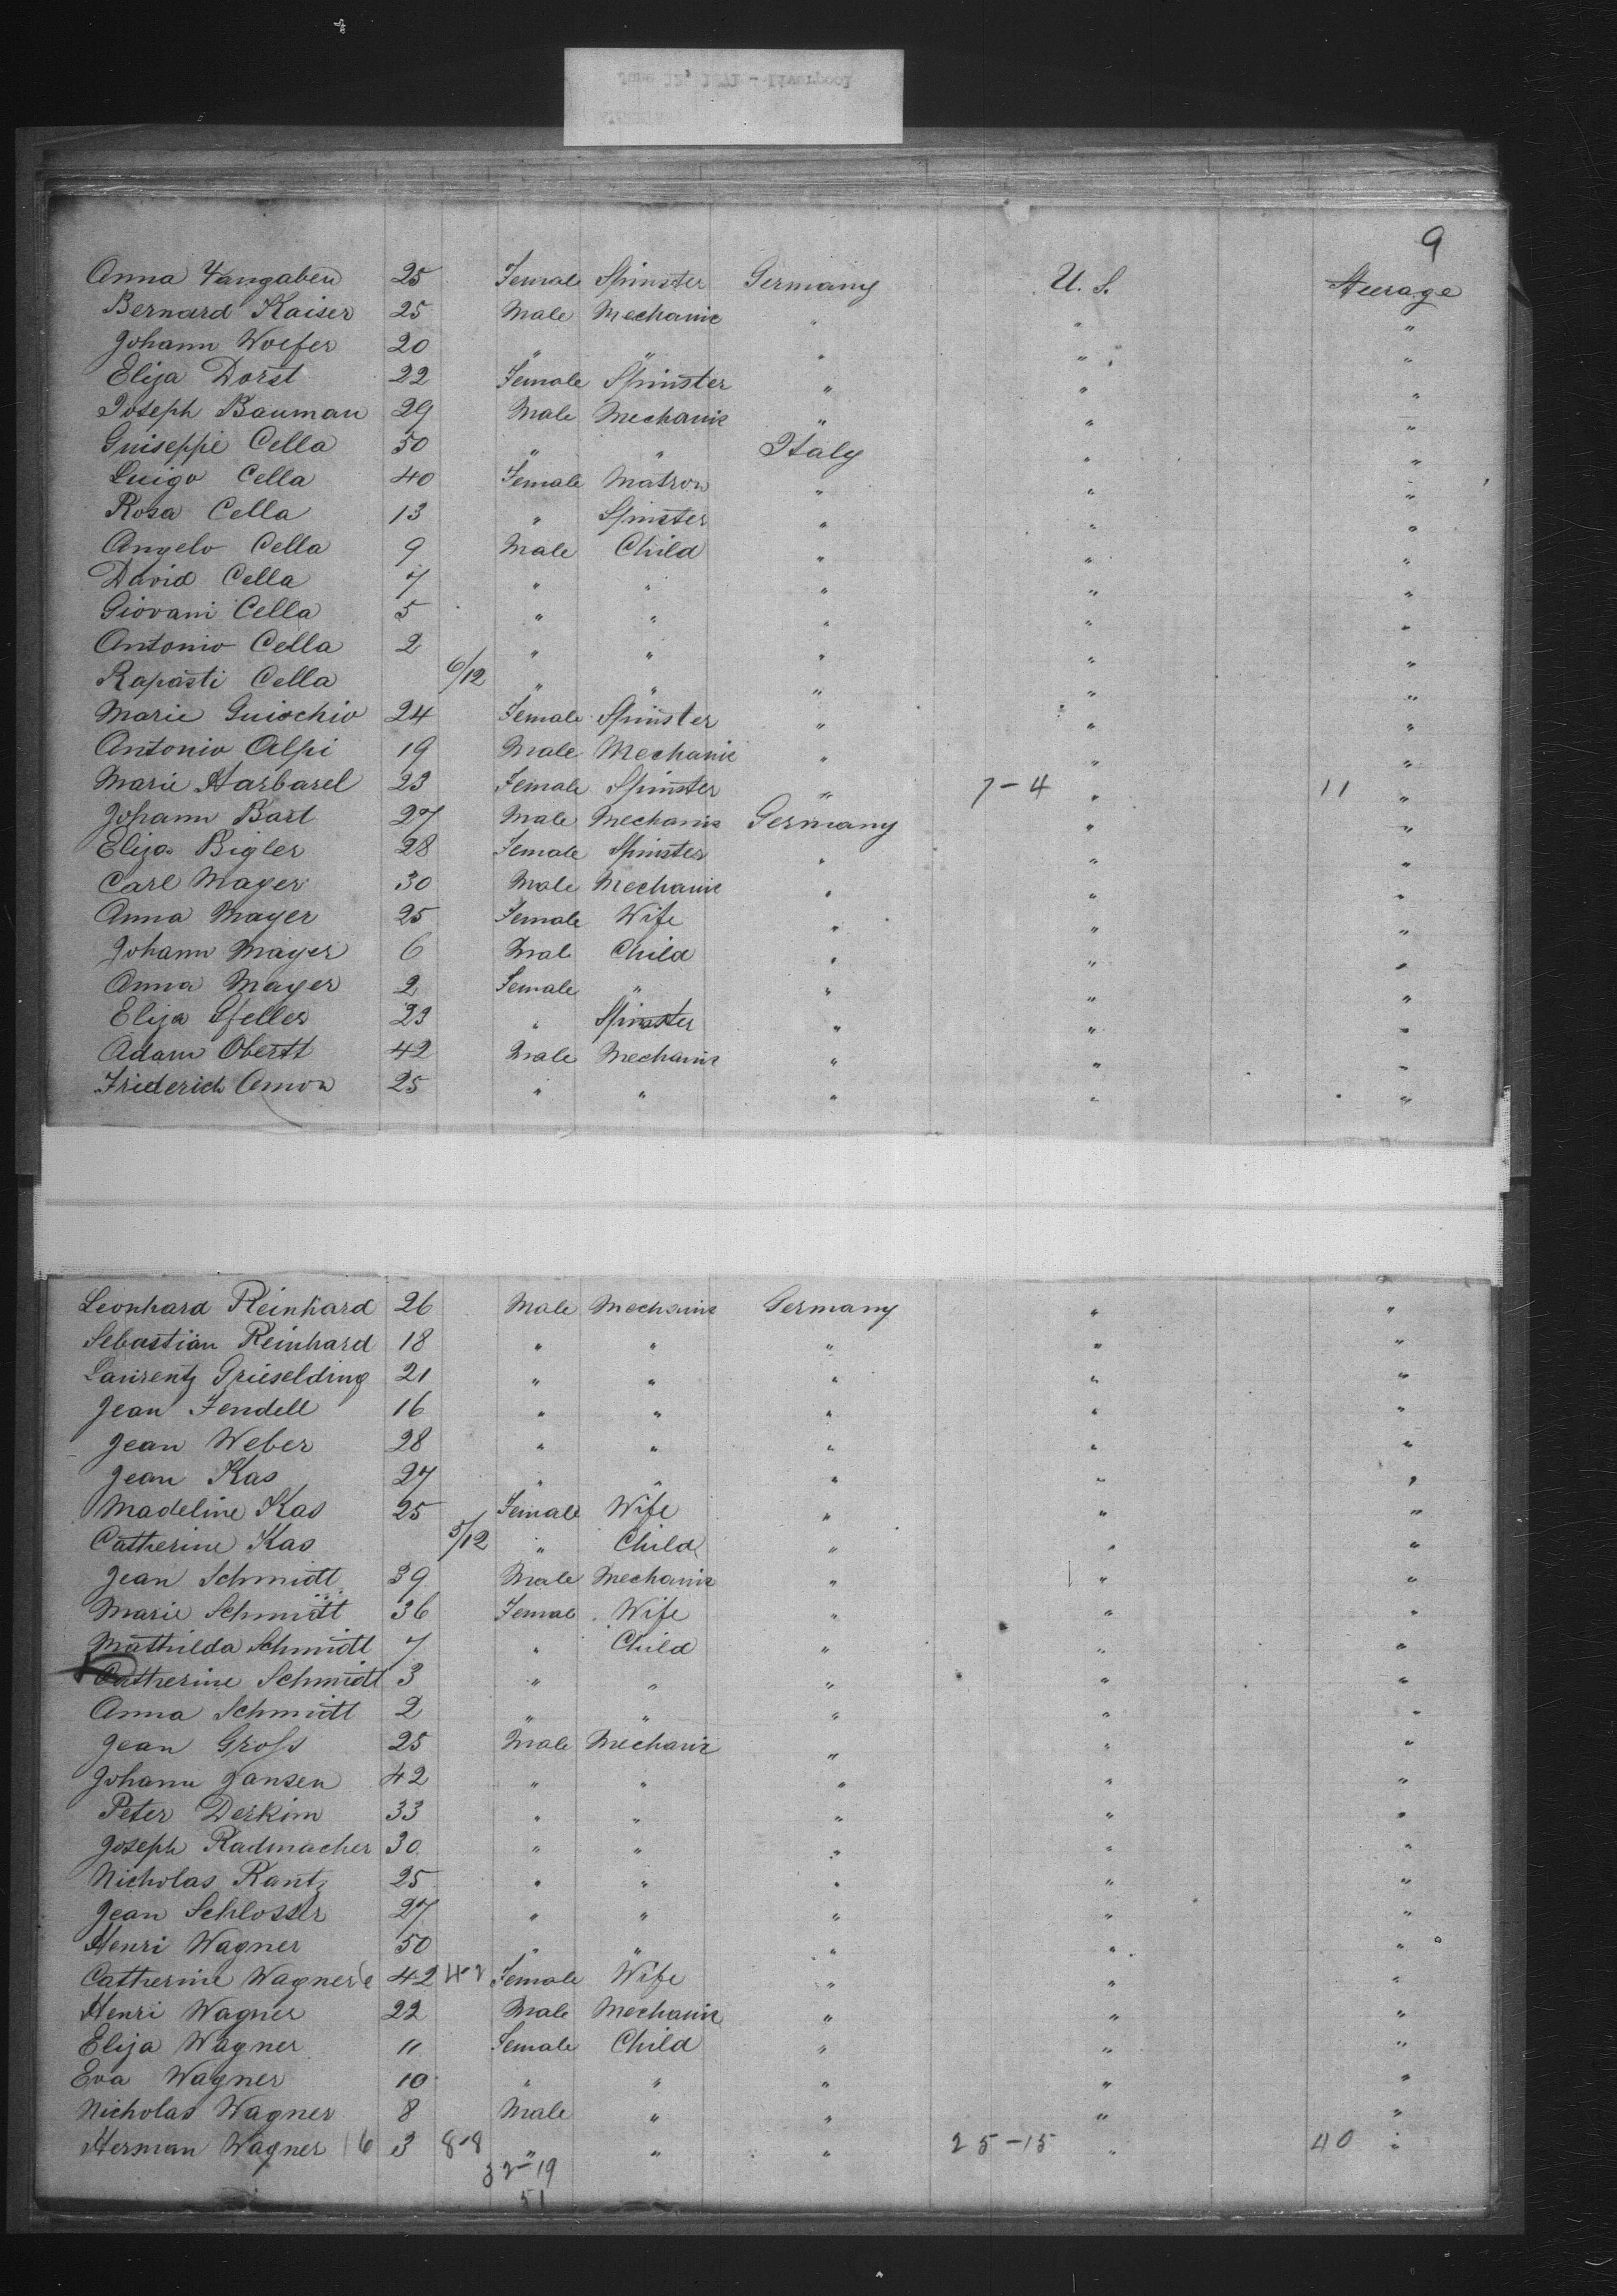 June 12, 1871 - Liverpool
9
Anna Vangaben 25 Female Spinster Germany U. S. Steerage
Bernard Kaiser 25 Male Mechanic " " "
Johann Woefer 20 " " " " "
Eliza Dorst 22 Female Spinster " " "
Joseph Bauman 29 Male Mechanic " " "
Guiseppe Cella 50 " " Italy " "
Luigo Cella 40 Female Matron " " "
Rosa Cella 13 " Spinster " " "
Angelo Cella 9 Male Child " " "
David Cella 7 " " " " "
Giovani Cella 5 " " " " "
Antonio Cella 2 " " " " "
Rapasti Cella 6/12 " " " " "
Marie Guischio 24 Female Spinster " " "
Antonio Alpi 19 Male Mechanic " " "
Marie Harbarel 23 Female Spinster " 7-4 " 11 "
Johann Bart 27 Male Mechanic Germany " "
Eliza Bigler 28 Female Spinster " " "
Carl Mayer 30 Male Mechanic " " "
Anna Mayer 25 Female Wife " " "
Johann Mayer 6 Mal Child " " "
Anna Mayer 2 Female " " " "
Eliza Gfeller 23 " Spinster " " "
Adam Obertt 42 Male Mechanic " " "
Friederich Amon 25 " " " " "
Leonhard Reinhard 26 Male Mechanic Germany " "
Sebastian Reinhard 18 " " " " "
Laurentz Grieselding 21 " " " " "
Jean Fendell 16 " " " " "
Jean Weber 28 " " " " "
Jean Kas 27 " " " " "
Madeline Kas 25 Female Wife " " "
Catherine Kas 5/12 " Child " " "
Jean Schmidt 39 Male Mechanic " " "
Marie Schmidt 36 Femal Wife " " "
Mathilda Schmidt 7 " Child " " "
Catherine Schmidt 3 " " " " "
Anna Schmidt 2 " " " " "
Jean Gross 25 Male Mechanic " " "
Johann Jansen 42 " " " " "
Peter Derkim 33 " " " " "
Joseph Radmacher 30 " " " " "
Nicholas Rantz 25 " " " " "
Jean Schlosser 27 " " " " "
Henri Wagner 50 " " " " "
Catherine Wagner 42 4-2 Female Wife " " "
Henri Wagner 22 Male Mechanic " " "
Eliza Wagner 11 Female Child " " "
Eva Wagner 10 " " " " "
Nicholas Wagner 8 Male " " " "
Herman Wagner 16 3 8-8 " " " 25-15 " 40 "
32-19
51